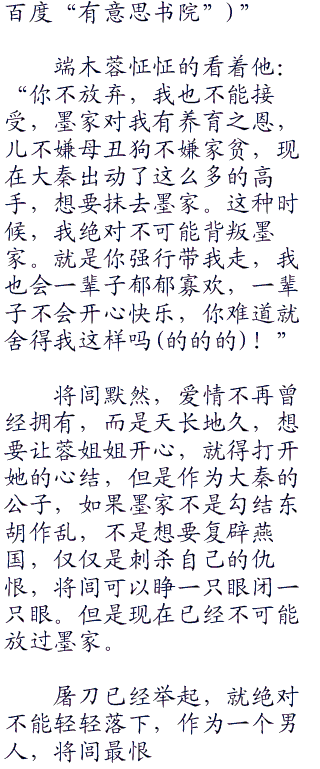 百度“有意思书院”)”
端木蓉怔怔的看着他：
“你不放弃，我也不能接
受，墨家对我有养育之恩，
儿不嫌母丑狗不嫌家贫，现
在大秦出动了这么多的高
手，想要抹去墨家。这种时
候，我绝对不可能背叛墨
家。就是你强行带我走，我
也会一辈子郁郁寡欢，一辈
子不会开心快乐，你难道就
舍得我这样吗(的的的)！”
将闾默然，爱情不再曾
经拥有，而是天长地久，想
要让蓉姐姐开心，就得打开
她的心结，但是作为大秦的
公子，如果墨家不是勾结东
胡作乱，不是想要复辟燕
国，仅仅是刺杀自己的仇
恨，将闾可以睁一只眼闭一
只眼。但是现在已经不可能
放过墨家。
屠刀已经举起，就绝对
不能轻轻落下，作为一个男
人，将闾最恨